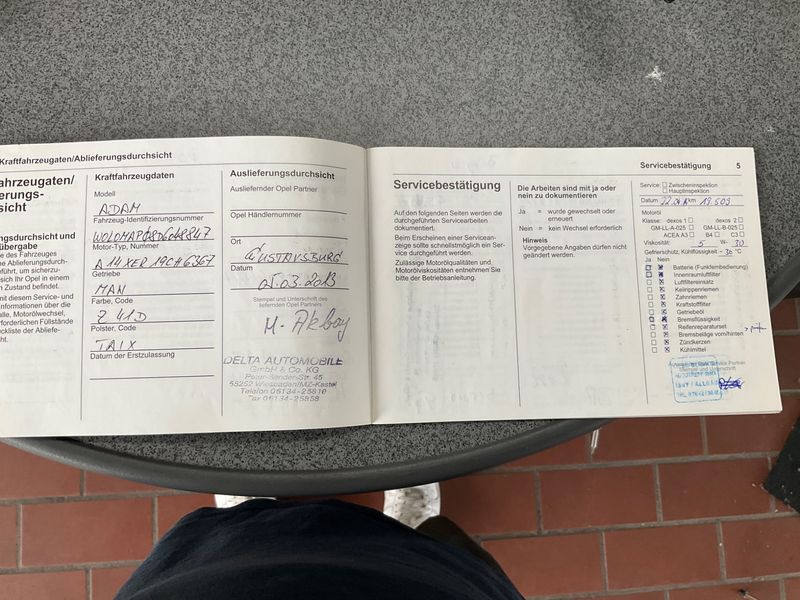 Kraftfahrzeugaten/Ablieferungsdurchsicht
ahrzeugaten/
erungs-
sicht
ngsdurchsicht und
übergabe
e des Fahrzeuges
ne Ablieferungsdurch-
eführt, um sicherzu-
s sich Ihr Opel in einem
n Zustand befindet.
mit diesem Service- und
Informationen über die
alle, Motorölwechsel,
erforderlichen Füllstände
eckliste der Abliefe-
ht.
Kraftfahrzeugdaten
Modell
ADAM
Fahrzeug-Identifizierungsnummer
Motor-Typ, Nummer
A14XER 19CH6367
Getriebe
MAN
Farbe, Code
Z 41D
Polster, Code
TAIX
Datum der Erstzulassung
Auslieferungsdurchsicht
Ausliefernder Opel Partner
Opel Händlernummer
Ort
GUSTAVSBURG
Datum
05.03.2013
Stempel und Unterschrift des
liefernden Opel Partners
M. Akbay
DELTA AUTOMOBILE
GmbH & Co. KG
55252 Wiesbaden/MZ-Kastel
Telefon 06134-25810
Fax 06134-25858
Servicebestätigung 5
Servicebestätigung
Auf den folgenden Seiten werden die
durchgeführten Servicearbeiten
dokumentiert.
Beim Erscheinen einer Servicean-
zeige sollte schnellstmöglich ein Ser-
vice durchgeführt werden.
Zulässige Motorölqualitäten und
Motorölviskositäten entnehmen Sie
bitte der Betriebsanleitung.
Die Arbeiten sind mit ja oder
nein zu dokumentieren
Ja = wurde gewechselt oder
erneuert
Nein = kein Wechsel erforderlich
Hinweis
Vorgegebene Angaben dürfen nicht
geändert werden.
Service: Zwischeninspektion
Hauptinspektion
Datum km 19.503
Motoröl
Klasse: dexos 1 dexos 2
GM-LL-A-025 GM-LL-B-025
ACEA A3 B4 C3
Viskosität: 5 W- 30
Gefrierschutz, Kühlflüssigkeit -30 °C
Ja Nein
Batterie (Funkfernbedienung)
Innenraumluftfilter
Luftfiltereinsatz
Keilrippenriemen
Zahnriemen
Kraftstofffilter
Getriebeöl
Bremsflüssigkeit
Reifenreparaturset
Bremsbeläge vorn/hinten
Zündkerzen
Kühlmittel
Stempel und Unterschrift